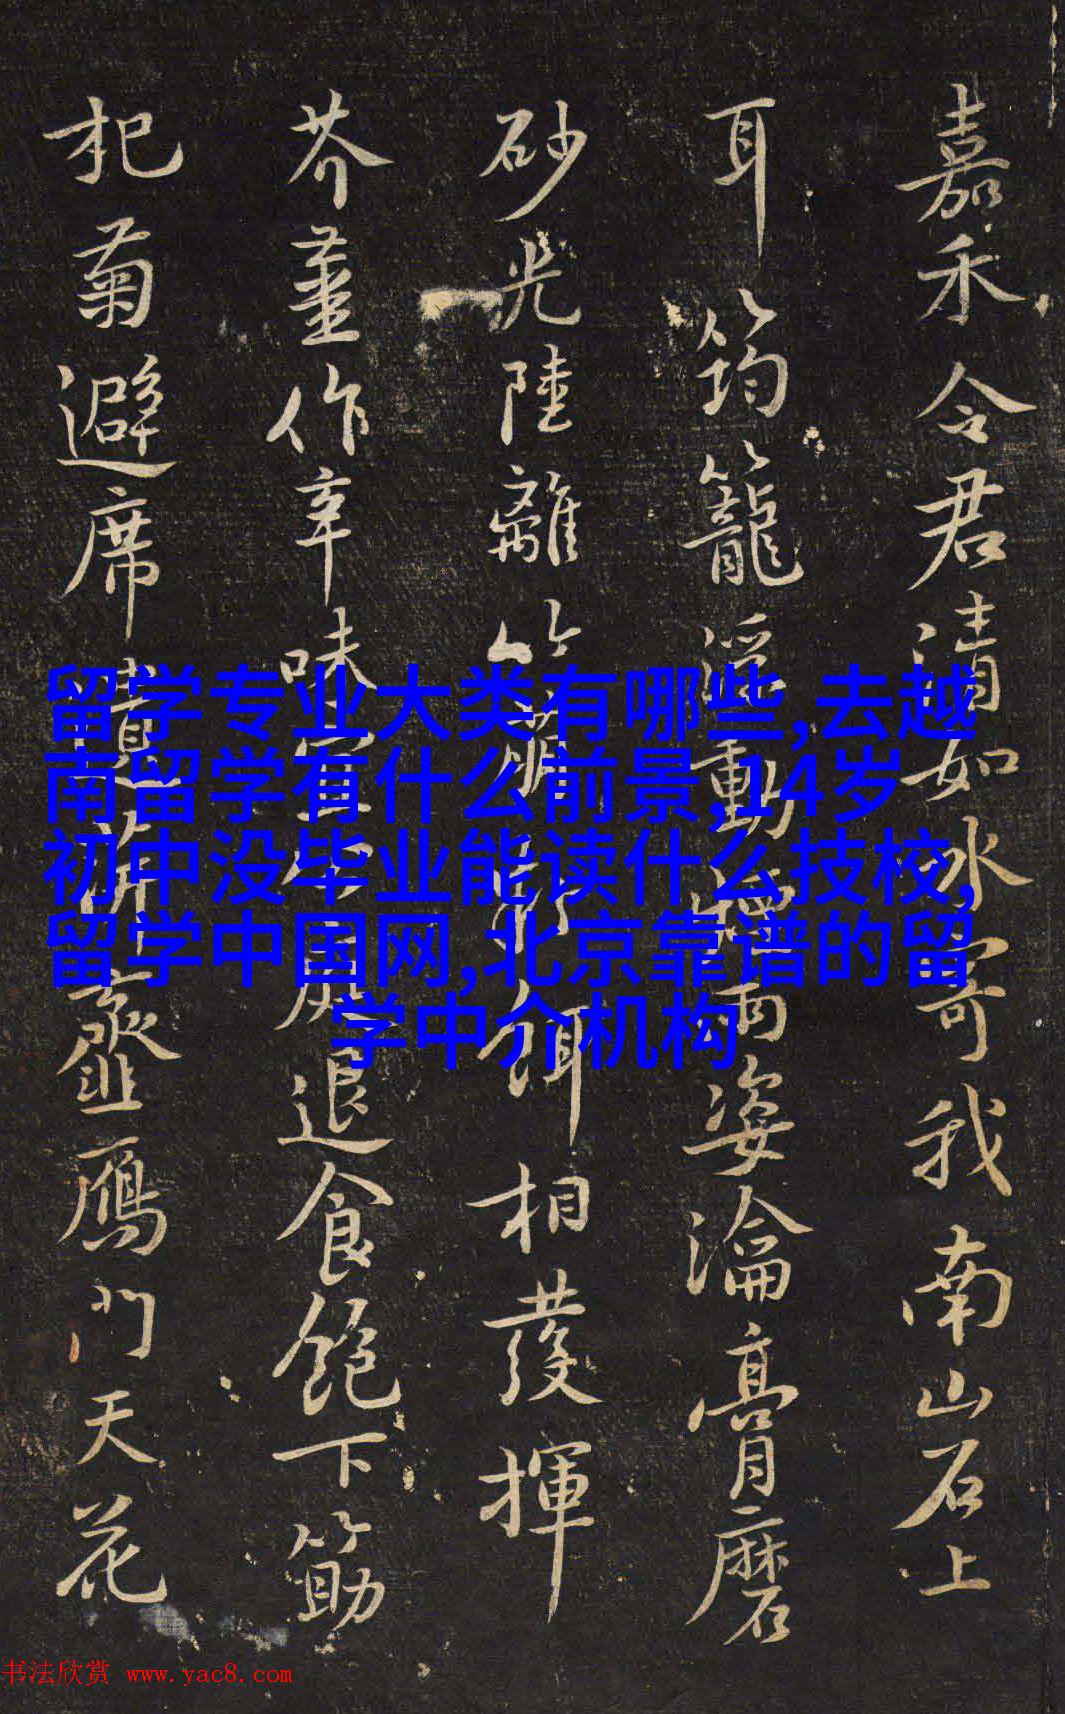 嘉禾令君清如冰寄我南山石上
耳筠籠浮動煙雨姿瀹膏磨
砂光陸離竹萌粉餌相發揮
芥薑作辛味宜公庭退食飽下筯
杞菊避席遺萍虀鴈門天花
留学专业大类有哪些,去越
南留学有什么前景,14岁
初中没毕业能读什么技校,
留学中国网,北京靠谱的留
学中介机构
书法欣赏 www.yac8.com